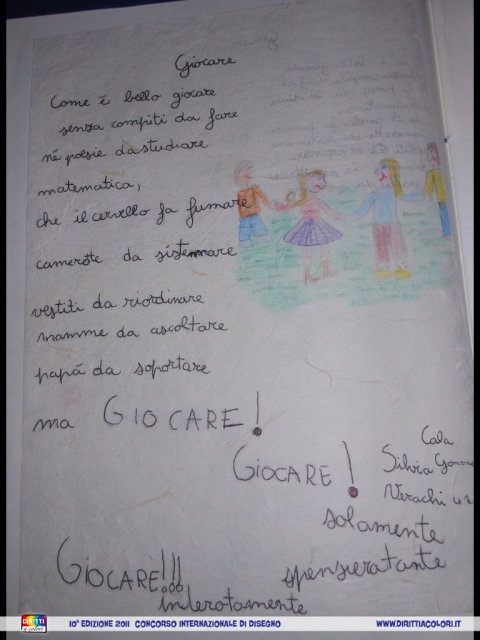 Giocare
Come è bello giocare
senza compiti da fare
né poesie da studiare
matematica,
che il cervello fa fumare
camerette da sistemare
vestiti da riordinare
mamme da ascoltare
papà da soportare
ma GIOCARE!
GIOCARE!
Cala
Silvia
Verachi
solamente
spensieratante
GIOCARE!!!
interotamente
DIRITTI A COLORI
10ª EDIZIONE 2011 CONCORSO INTERNAZIONALE DI DISEGNO
WWW.DIRITTIACOLORI.IT